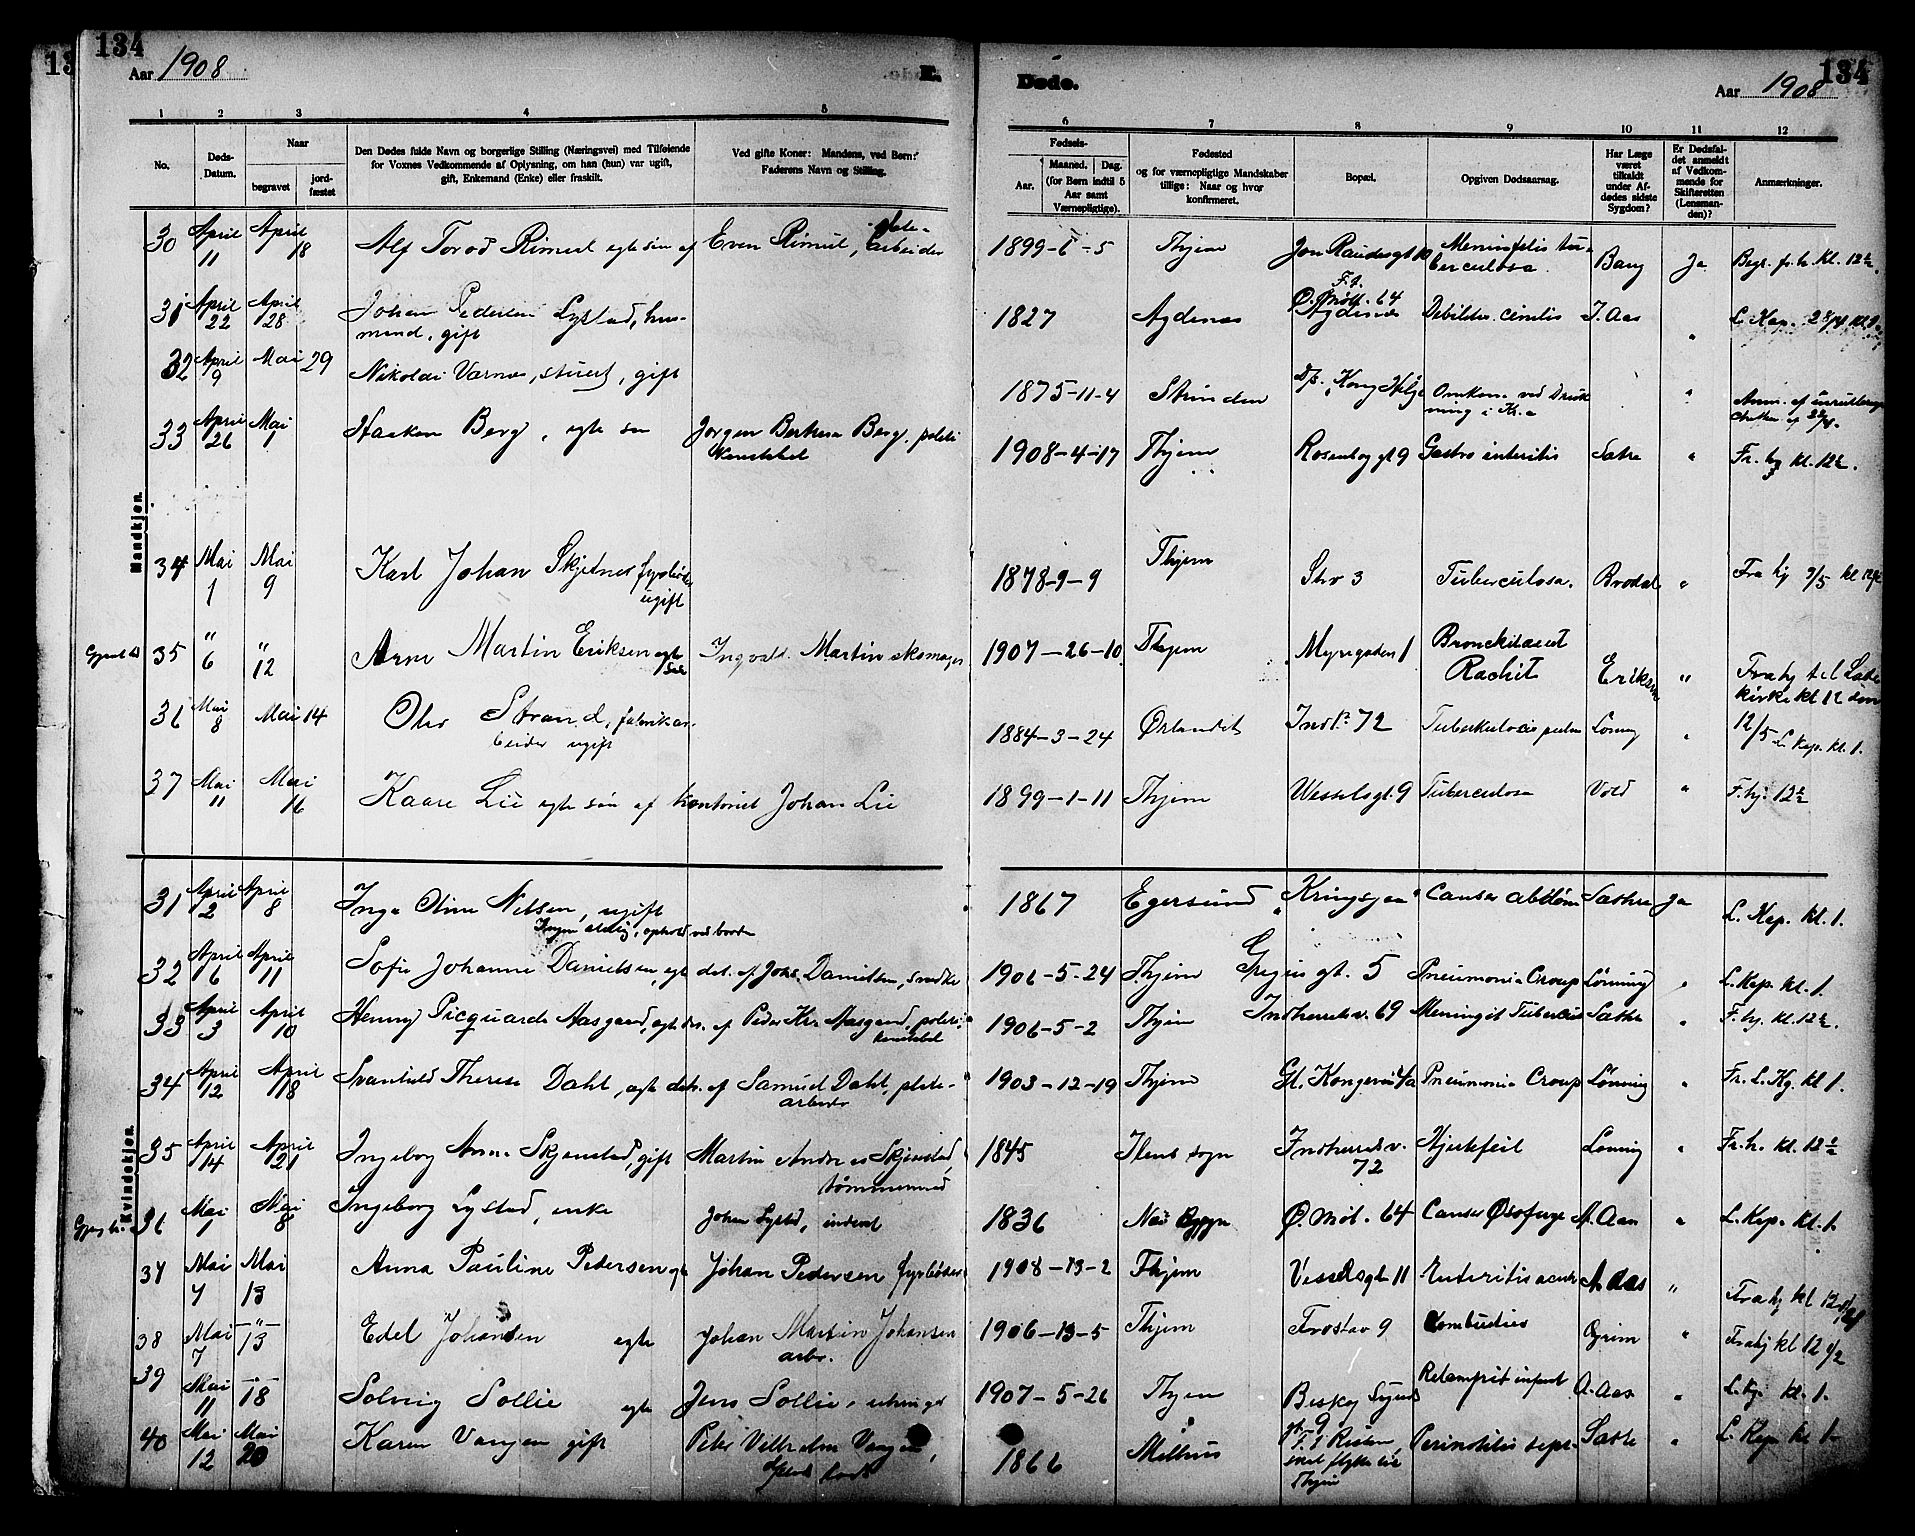 134
Aar 1908
E.
Døde.
134
Aar 1908
1 2 3 4 5 6 7 8 9 10 11 12
No.
Døds-Datum.
Naar
begravet
jord-fæstet
Den Dødes fulde Navn og borgerlige Stilling (Næringsvei) med Tilføiende
for Voxnes Vedkommende af Oplysning, om han (hun) var ugift,
gift, Enkemand (Enke) eller fraskilt.
Ved gifte Koner: Mandens, ved Børn:
Faderens Navn og Stilling.
Fødsels-
Aar.
Maaned. Dag.
(for Børn indtil 5
Aar samt
Værnepligtige).
Fødested
og for værnepligtige Mandskaber
tillige: Naar og hvor
konfirmeret.
Bopæl.
Opgiven Dødsaarsag.
Har Læge
været
tilkaldt
under Af-
dødes sidste
Sygdom?
Er Dødsfal-
det anmeldt
af Vedkom-
mende for
Skifteretten
(Lensman-
den)?
Anmærkninger.
Mandkjøn.
30 April 11 April 18 Alf Torod Rimul egte søn af Even Rimul, arbeider 1899-6-5 Thjem Meningitis tuberculosa Bang Ja Begr. kl. 12½.
31 April 22 April 28 Johan Pedersen Lystad, husmand, gift 1827 Agdenæs Ø. Møll. 64 Agdenæs Debilitas I. Aas " L. Kap. 28/4 kl.
32 April 9 Mai 29 Nikolai Værnes, stuert, gift 1875-11-4 Strinden D/s. Kong Helge Omkom ved Drukning i Kr.a "
33 April 26 Mai 1 Haakon Berg, egte søn Jørgen Berg, politikonstabel 1908-4-17 Thjem Rosenborg gt 9 Gastro enteritis Sæthre " Fr. hj kl. 12½.
34 Mai 1 Mai 9 Karl Johan Skjetnes fyrbøder ugift 1878-9-9 Thjem Strv 3 Tuberculosa. Brodal " Fra hj 9/5 kl 12½
35 " 6 " 12 Arne Martin Eriksen egte søn Ingvald Martin skomager 1907-26-10 Thjem Myregaden 1 Rachit Eriksen " Fra hj til Lade kirke kl 12 den 12/5
36 Mai 8 Mai 14 Olav Strand, fabrikarbeider ugift 1884-3-24 Ørlandet Indh. 72 Tuberkulosis pulm Lønning " L. Kap. kl. 1.
37 Mai 11 Mai 16 Kaare Lie egte søn af kontorist Johan Lie 1899-1-11 Thjem Wesselsgt. 9 Tuberculose Vold " F. hj. 12½
Kvindekjøn.
31 April 2 April 8 Inga Oline Nilsen, ugift 1867 Egersund Kringsjaa Cancer abdom Sæthre Ja L. Kap. kl. 1.
32 April 6 April 11 Sofie Johanne Danielsen, egt dat. af Johs Danielsen, snedker 1906-5-24 Thjem gt. 5 Pneumoni Croup Lønning " L. Kap. kl. 1.
33 April 3 April 10 Henny Picquarde Aasgaard, egt dtr. af Peder Kr. Aasgaard, politikonstabel 1906-5-2 Thjem Indherredsv. 69 Meningit Tubercul Sæthre " F. hj. kl. 12½.
34 April 12 April 18 Svanhild Therese Dahl, egte datr. af Samuel Dahl, platearbeider 1903-12-19 Thjem Gl. Kongevei 4a Pneumonia Croup Lønning " Fr. L. Kg. kl 1.
35 April 14 April 21 Ingeborg Anna Skjenstad, gift Martin Andreas Skjenstad, tømmermand 1845 Ilens sogn Indherredsv. 72 Hjertefeil Lønning " Fr. h. kl. 12½
36 Mai 1 Mai 8 Ingeborg Lystad, enke Johan Lystad, inderst 1836 Ø. Møl. 64 Cancer Øsofage A. Aas " L. Kap. kl. 1.
37 Mai 7 Mai 13 Anna Pauline Pedersen egte Johan Pedersen fyrbøder 1908-13-2 Thjem Vesselsgt 11 Enteritis acut A Aas " Fra hj kl 12
38 Mai 7 -"- 13 Edel Johansen egte Johan Martin Johansen arbr. 1906-13-5 Thjem Frostav 9 Combustio Grim " Fra hj kl 12 1/2
39 Mai 11 -"- 18 Solveig Sollie egte Jens Sollie, 1907-5-26 Thjem A. Aas " L. Kp. kl. 1.
40 Mai 12 Mai 20 Karen Vangen gift Peter Vilhelm Vangen, 1866 Melhus Thjem Sæthre " L. Kap kl 1.